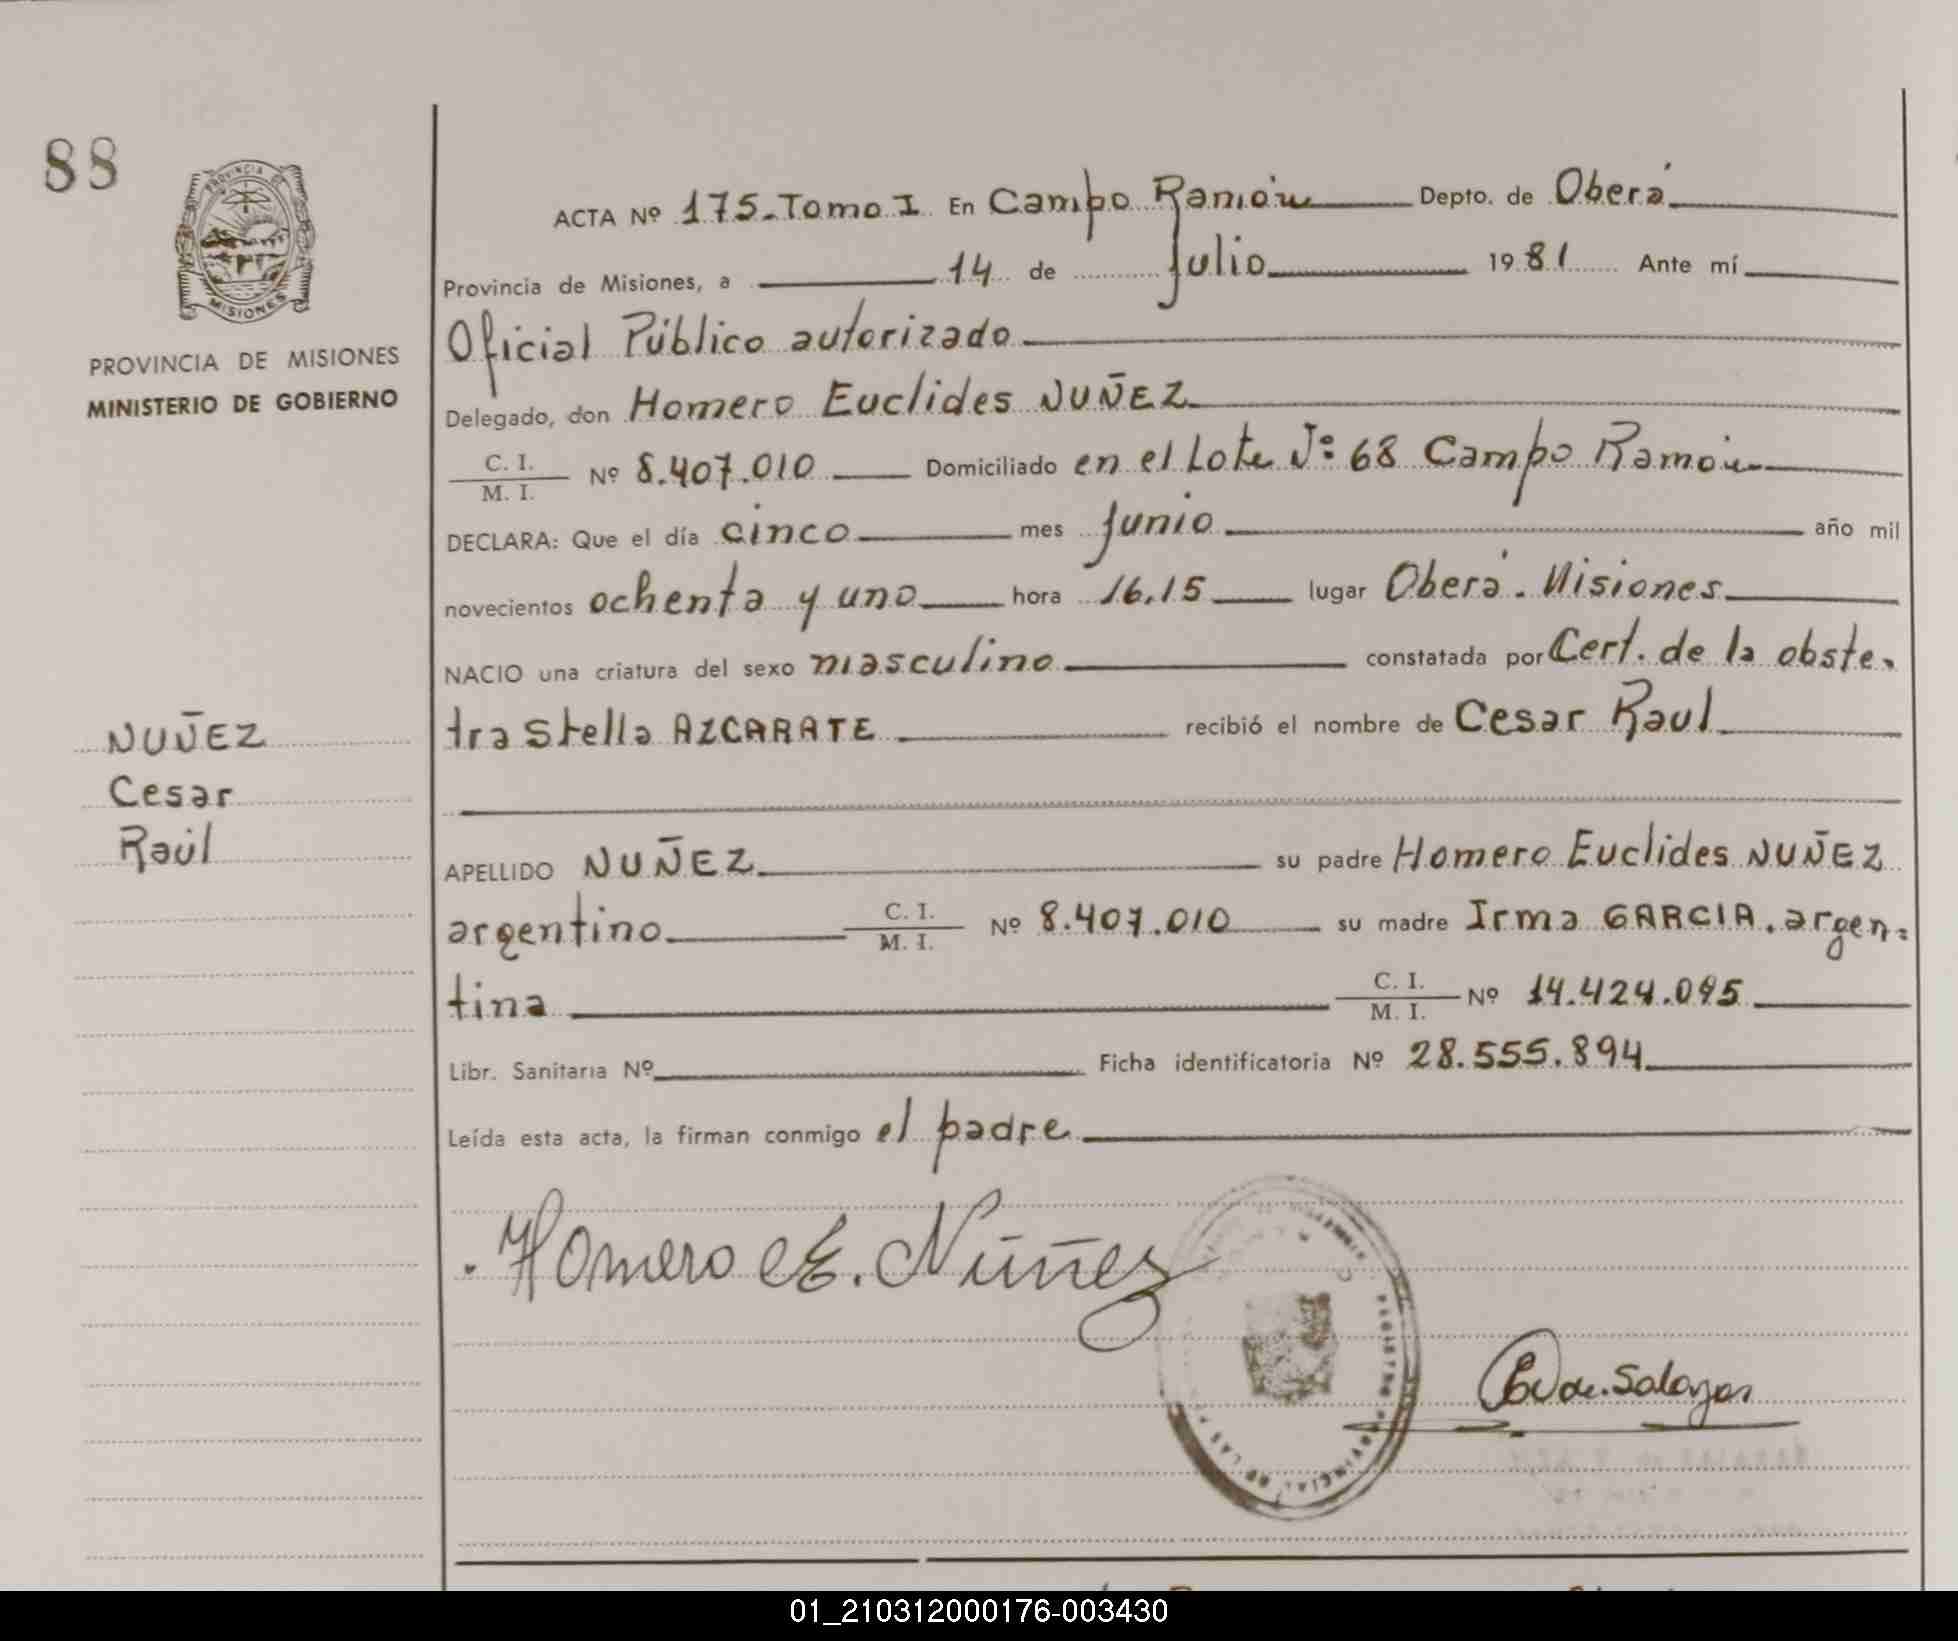 88
PROVINCIA DE
MISIONES
PROVINCIA DE MISIONES
MINISTERIO DE GOBIERNO
ACTA Nº 175-Tomo I En Campo Ramón Depto. de Oberá
Provincia de Misiones, a 14 de julio 1981 Ante mí
Oficial Público autorizado
Delegado, don Homero Euclides NUÑEZ
C. I.
M. I. Nº 8.407.010 Domiciliado en el Lote Nº 68 Campo Ramón
DECLARA: Que el día cinco mes junio año mil
novecientos ochenta y uno hora 16,15 lugar Oberá. Misiones
NACIO una criatura del sexo masculino constatada por Cert. de la obste-
tra Stella AZCARATE recibió el nombre de Cesar Raul
NUÑEZ
Cesar
Raúl
APELLIDO NUÑEZ su padre Homero Euclides NUÑEZ
argentino C. I. M. I. Nº 8.407.010 su madre Irma GARCIA. argen-
tina C. I. M. I. Nº 14.424.095
Libr. Sanitaria Nº Ficha identificatoria Nº 28.555.894
Leída esta acta, la firman conmigo el padre
Homero E. Núñez
REGISTRO PROVINCIAL DE LAS
01_210312000176-003430